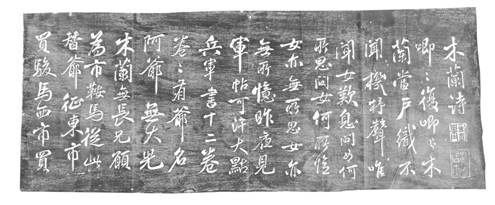 木蘭詩
唧〻復唧〻木
蘭當戶織不
聞機杼聲唯
聞女歎息問女何
所思問女何所憶
女亦無所思女亦
無所憶昨夜見
軍帖可汗大點
兵軍書十二卷
卷〻有爺名
阿爺無大兒
木蘭無長兄願
為市鞍馬從此
替爺征東市
買駿馬西市買